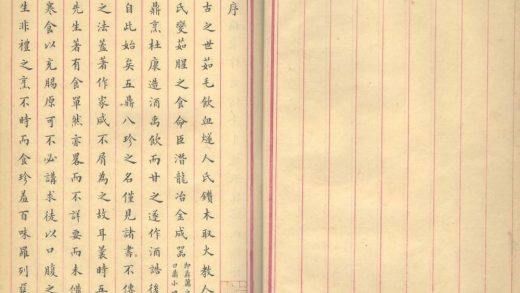 序
古之世茹毛飲血燧人氏鑽木取火教人
氏變茹腥之食命臣潛龍冶金成器
鼎烹杜康造酒禹飲而甘之遂作酒誥後
自此始矣五鼎八珍之名僅見諸書不傳
之法蓋著作家咸不屑為之故耳曩時五
先生著有食單然亦略而不詳要而未備
寒食以充腸原可不必講求徒以口腹之
生非禮之烹不時而食珍羞百味羅列